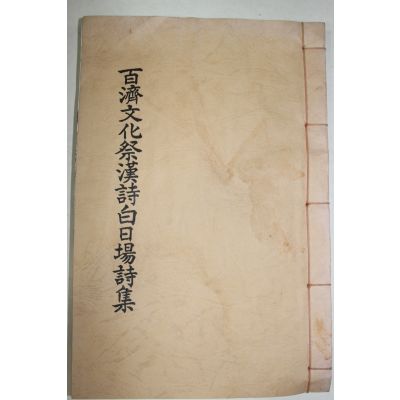 百濟文化祭漢詩白日場詩集